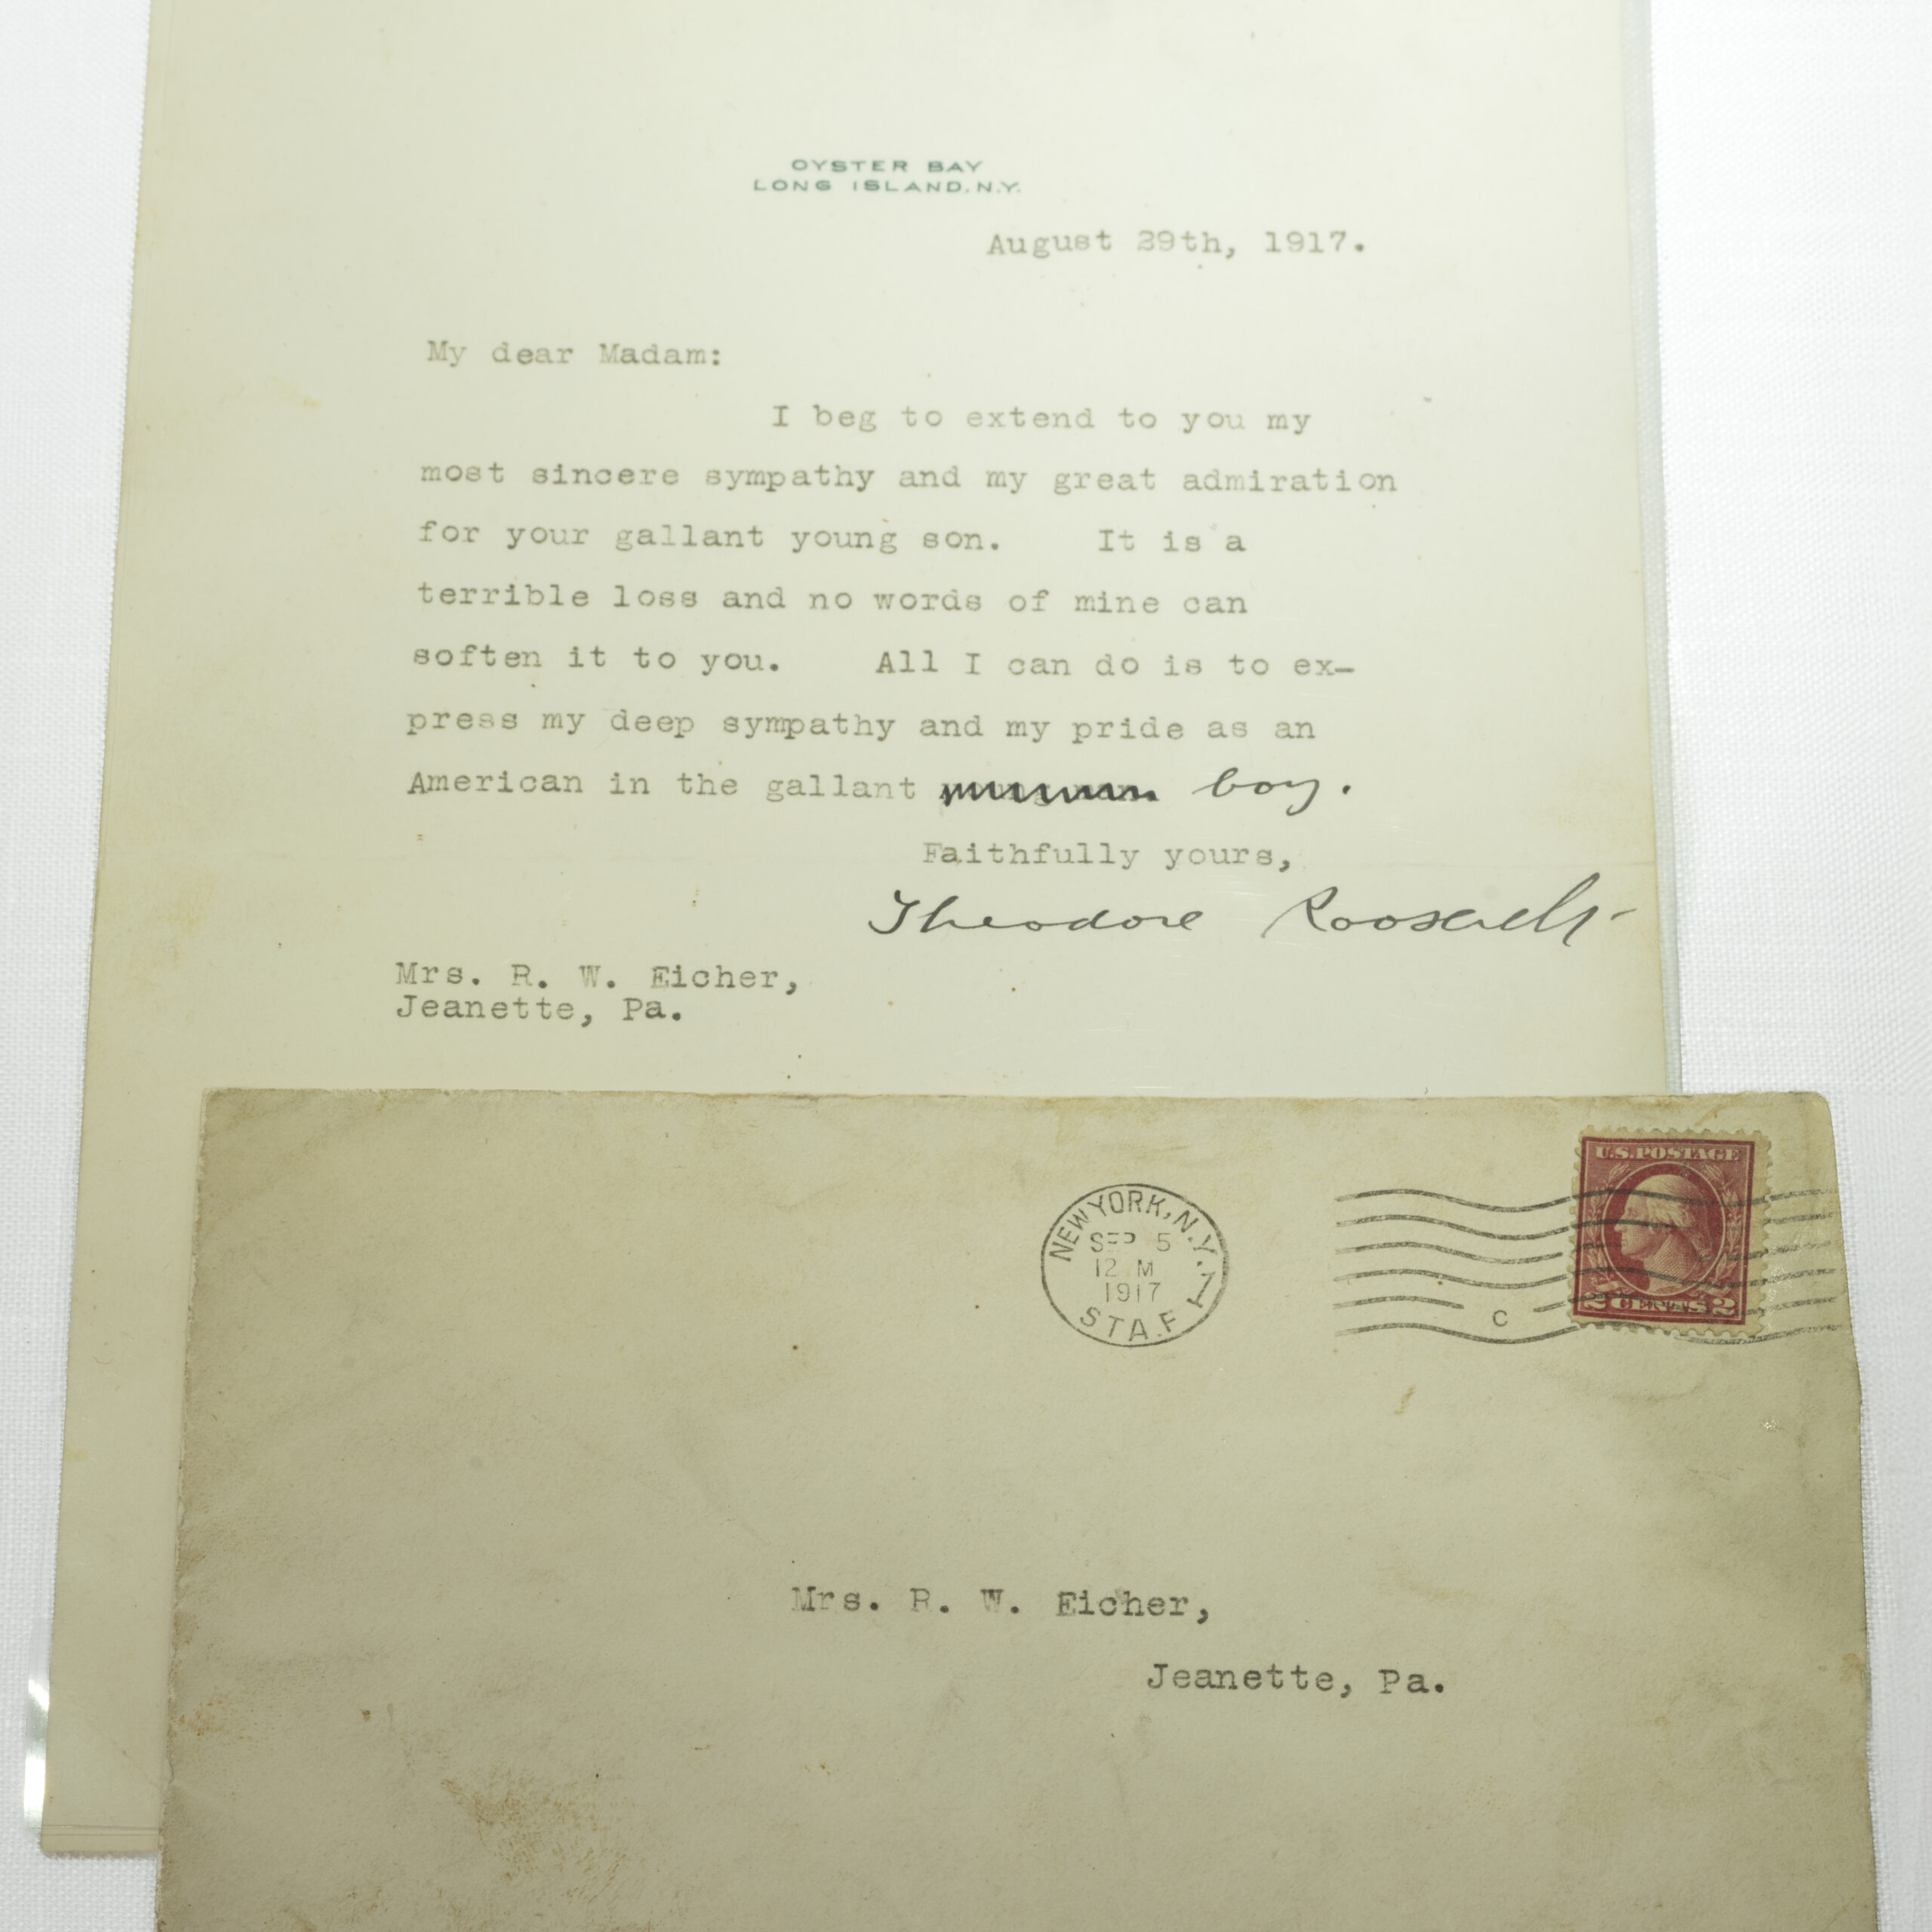 OYSTER BAY
LONG ISLAND, N.Y.
August 29th, 1917.
My dear Madam:
I beg to extend to you my
most sincere sympathy and my great admiration
for your gallant young son. It is a
terrible loss and no words of mine can
soften it to you. All I can do is to ex-
press my deep sympathy and my pride as an
American in the gallant boy.
Faithfully yours,
Theodore Roosevelt
Mrs. R. W. Eicher,
Jeanette, Pa.
NEW YORK, N.Y. 1
SEP 5
12 M
1917
STA. F
C
U.S. POSTAGE
2 CENTS 2
Mrs. R. W. Eicher,
Jeanette, Pa.